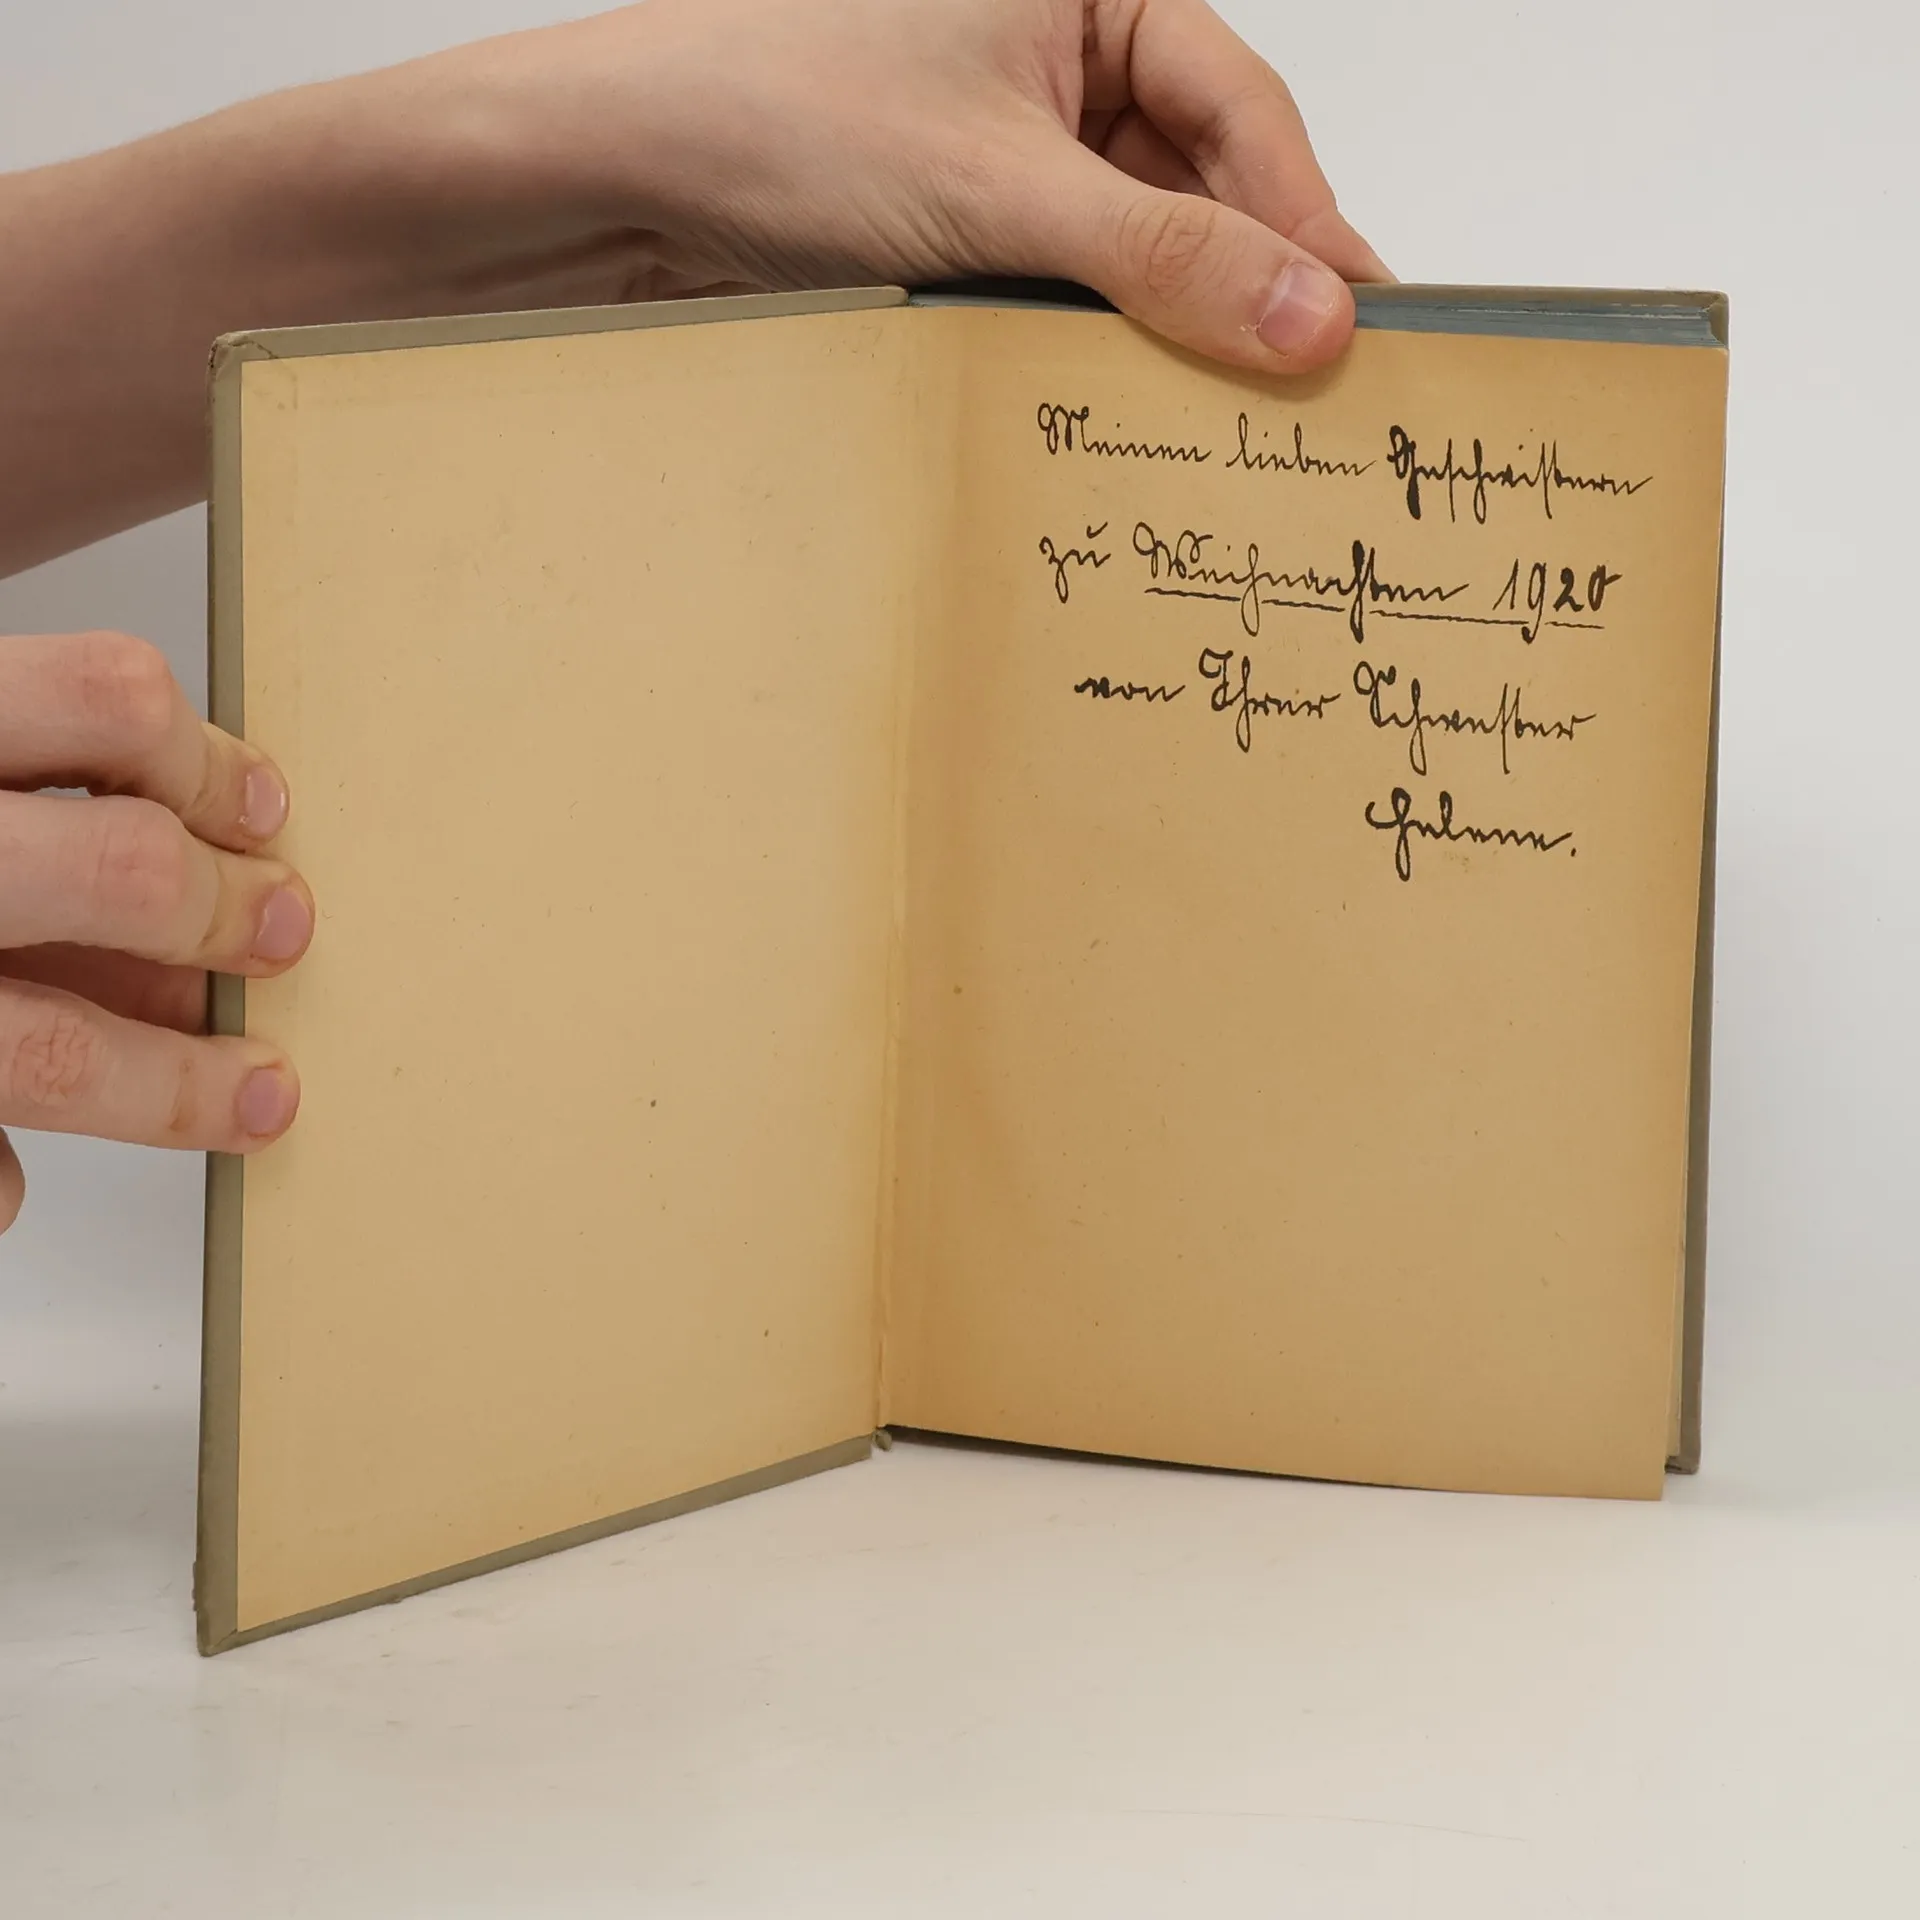 Meinen lieben Geschwistern
zu Weihnachten 1920
von Ihrer Schwester
Helene.